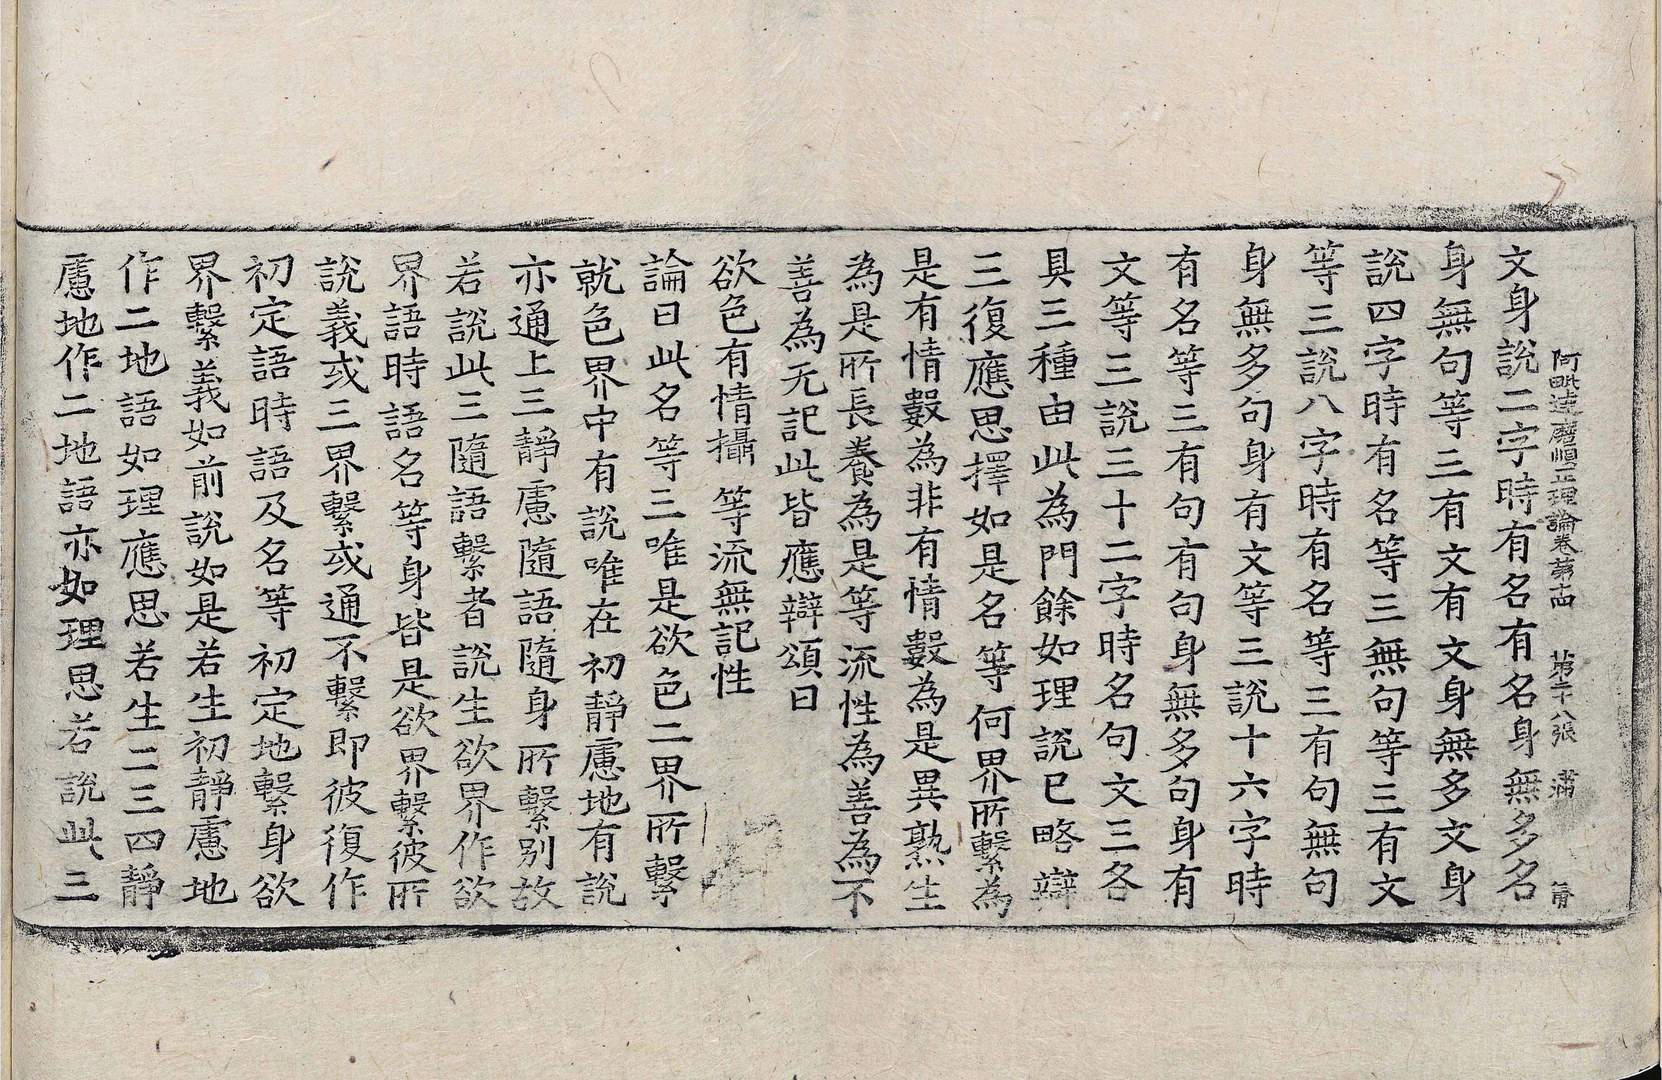 阿毗達磨順正理論卷第十四　第二十八張　滿
文身說二字時有名有名身無多名
身無句等三有文有文身無多文身
說四字時有名等三無句等三有文
等三說八字時有名等三有句無句
身無多句身有文等三說十六字時
有名等三有句有句身無多句身有
文等三說三十二字時名句文三各
具三種由此為門餘如理說已略辯
三復應思擇如是名等何界所繫為
是有情數為非有情數為是異熟生
為是所長養為是等流性為善為不
善為无記此皆應辯頌曰
欲色有情攝　等流無記性
論曰此名等三唯是欲色二界所繫
就色界中有說唯在初靜慮地有說
亦通上三靜慮隨語隨身所繫別故
若說此三隨語繫者說生欲界作欲
界語時語名等身皆是欲界繫彼所
說義或三界繫或通不繫即彼復作
初定語時語及名等初定地繫身欲
界繫義如前說如是若生初靜慮地
作二地語如理應思若生二三四靜
慮地作二地語亦如理思若說此三